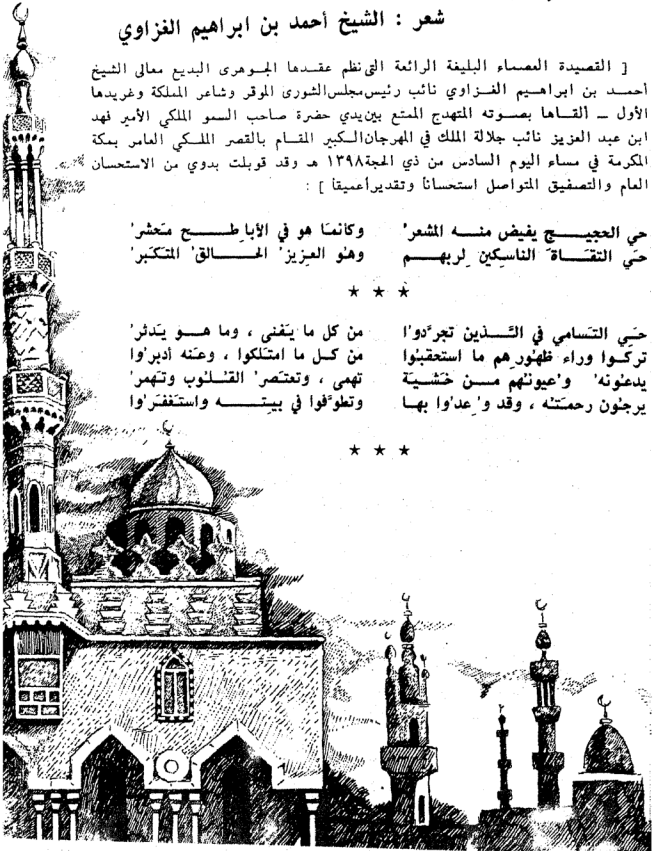 شعر : الشيخ أحمد بن ابراهيم الغزاوي
[ القصيدة العصماء البليغة الرائعة التي نظم عقدها الجوهرى البديع معالى الشيخ
أحمـد بن ابراهيـم الغـزاوي نائب رئيس مجلس الشورى الموقر وشاعر المملكة وغريدها
الأول ـ ألقاها بصوته المتهدج الممتع بين يدي حضرة صاحب السمو الملكي الأمير فهد
ابن عبد العزيز نائب جلالة الملك في المهرجان الكبير المقام بالقصر الملكي العامر بمكة
المكرمة في مساء اليوم السادس من ذي الحجة ١٣٩٨ هـ وقد قوبلت بدوي من الاستحسان
العام والتصفيق المتواصل استحساناً وتقديراً عميقاً ] :
حي الحجيـج يفيض منـه المشعرُ وكأنمَا هو في الأباطـح مَحْشرُ
حَي التقـاةَ الناسكِين لِربهـم وهُو العزيزُ الخـالقُ المتكَبرُ
★ ★ ★
حَـي التسَامي في الَّـذين تجرَّدوا مِن كل ما يَفنى ، وما هـو يَدثرُ
تركـوا وراء ظهُورِهم ما استحقبُوا مَن كـل ما امتَلكوا ، وعنه أدبرُوا
يدعُونهُ وعيونُهم مـن خَشيـة تهمى ، وتعتَصرُ القلُـوب وتَهمرُ
يرجُون رحمتَـه ، وقد وُعِدُوا بهـا وتطوَّفُوا في بيتِـه واستَغفَرُوا
★ ★ ★